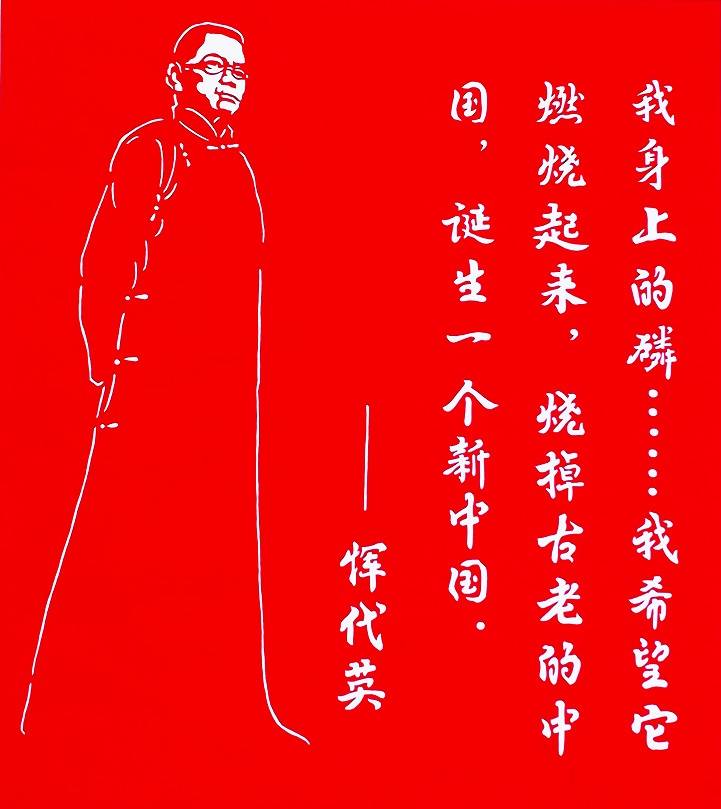 我身上的磷……我希望它
燃烧起来，烧掉古老的中
国，诞生一个新中国.
——恽代英